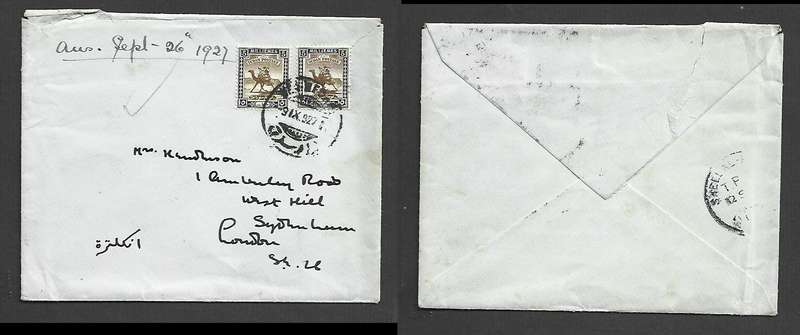 Ans. Sept - 26" 1927
5 MILLIEMES 5
5 MILLIEMES 5
9 IX 927
Mrs. Henderson
1 Amberley Road
West Hill
Sydenham
London
S.E. 26
انكلترة
SHELLAL
T.P.